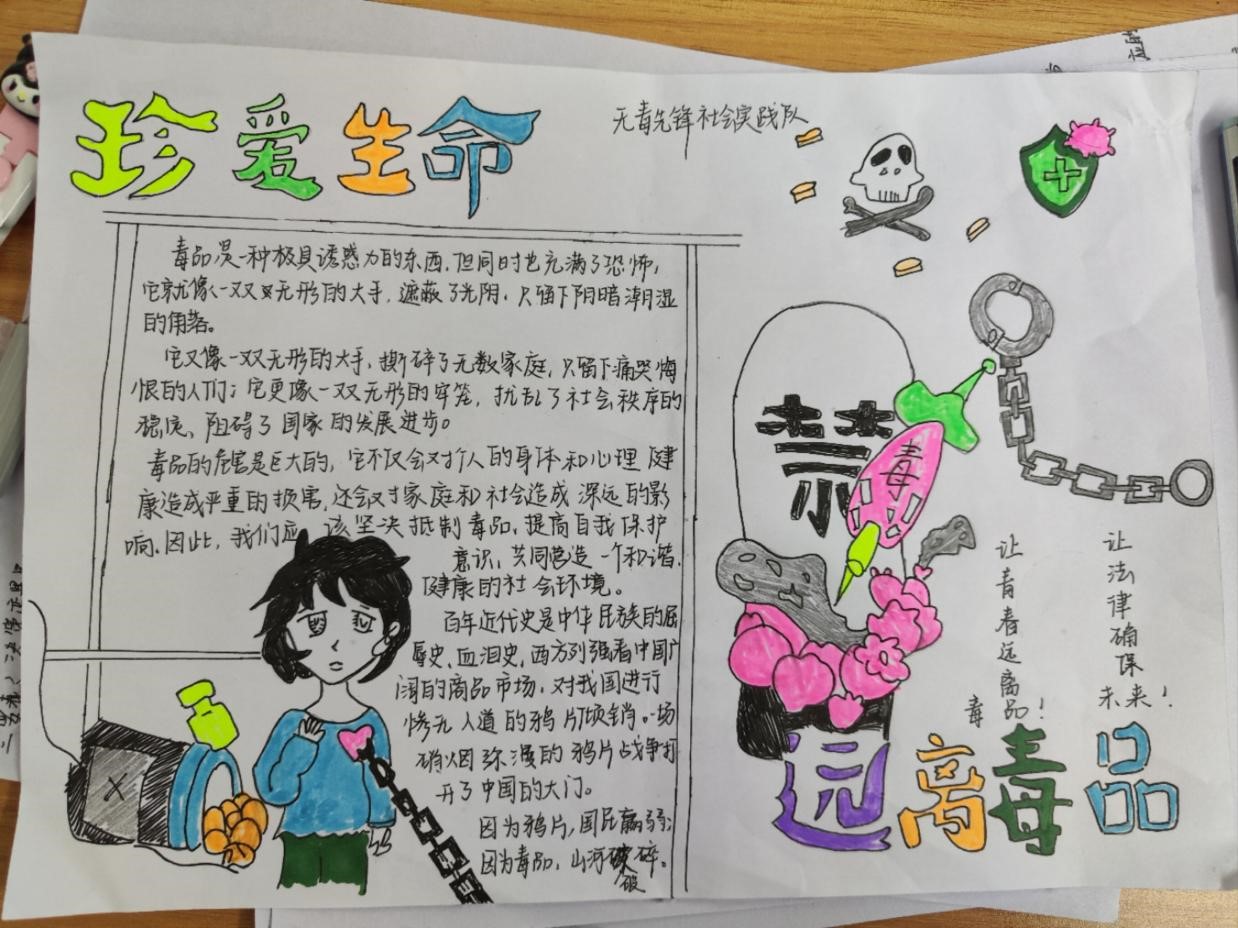 珍爱生命
无毒先锋社会实践队
毒品是一种极具诱惑力的东西，但同时也充满了恐怖，
它就像一双双无形的大手，遮蔽了光阴，只留下阴暗潮湿
的角落。
它又像一双无形的大手，撕碎了无数家庭，只留下痛哭悔
恨的人们；它更像一双无形的牢笼，扰乱了社会秩序的
稳定、阻碍了国家的发展进步。
毒品的危害是巨大的，它不仅会对个人的身体和心理健
康造成严重的损害，还会对家庭和社会造成深远的影
响。因此，我们应该坚决抵制毒品，提高自我保护
意识，共同营造一个和谐、
健康的社会环境。
百年近代史是中华民族的屈
辱史，血泪史，西方列强看中国广
阔的商品市场，对我国进行
惨无人道的鸦片倾销。一场
硝烟弥漫的鸦片战争打
开了中国的大门。
因为鸦片，国民羸弱；
因为毒品，山河破碎。
禁
毒
让青春远离毒品！
让法律确保未来！
远离毒品